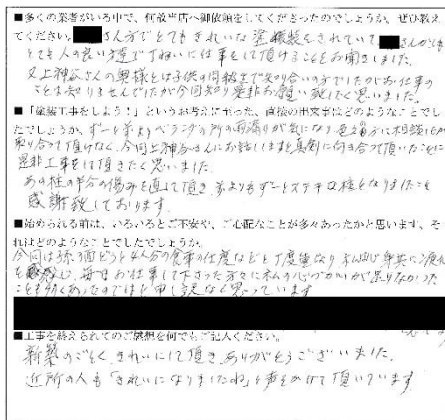 ■多くの業者がいる中で、何故当店へ御依頼をしてくださったのでしょうか。ぜひ教え
てください。さん方でとてもきれいな塗装をされていて
とても人の良い方達で丁ねいに仕事をして頂けることをお聞きしました。
又上神谷さんの奥様とは子供の同級生で知り合いの方でしたがお仕事の
ことは知りませんでしたが今回知り是非お願い致したく思いました。
■「塗装工事をしよう！」というお考えに至った、直接の出来事はどのようなことでし
たでしょうか。ずーと前よりベランダの所の雨漏りが気になり
取り合って頂けなく、今回上神谷さんにお話ししますと真剣に向き合って頂いたことに
是非工事をして頂きたく思いました。
あの柱の半分の傷みを直して頂き前よりもずーとステキな柱となりましたこと
感謝致しております。
■始められる前は、いろいろとご不安や、ご心配なことが多々あったかと思います、そ
れはどのようなことでしたでしょうか。
今回は孫3個どうと4人分の食事の仕度などと丁度重なり
毎日お仕事して下さった方々に私の心づかいが足りなかった
ことも多くあったのではと申し訳なく思っています
■工事を終えられてのご感想を何でもご記入ください。
新築のごとくきれいにして頂きありがとうございました。
近所の人も「きれいになりましたね」と声をかけて頂いています